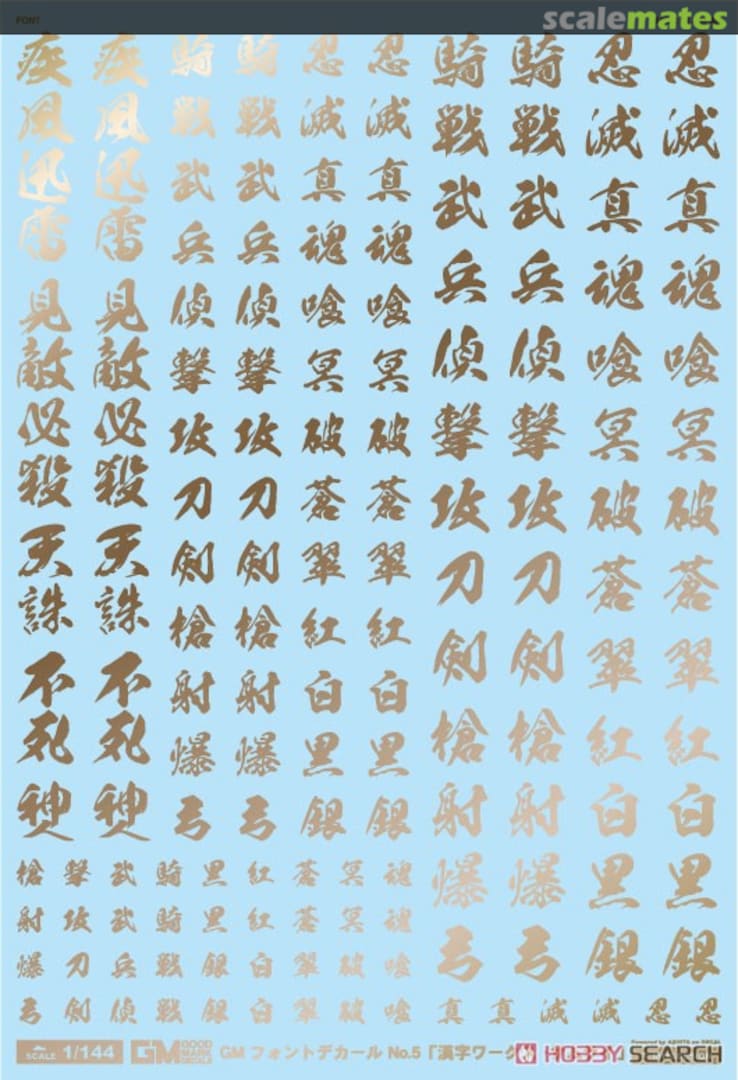 FONT
scalemates
疾風迅雷
疾風迅雷
見敵必殺
見敵必殺
天誅
天誅
不死
不死
騎 騎 忍 忍
戦 戦 滅 滅
武 武 真 真
兵 兵 魂 魂
偵 偵 喰 喰
撃 撃 冥 冥
攻 攻 破 破
刀 刀 蒼 蒼
剣 剣 翠 翠
槍 槍 紅 紅
射 射 白 白
爆 爆 黒 黒
弓 弓 銀 銀
騎 騎 忍 忍
戦 戦 滅 滅
武 武 真 真
兵 兵 魂 魂
偵 偵 喰 喰
撃 撃 冥 冥
攻 攻 破 破
刀 刀 蒼 蒼
剣 剣 翠 翠
槍 槍 紅 紅
射 射 白 白
爆 爆 黒 黒
弓 弓 銀 銀
槍 撃 武 騎 黒 紅 蒼 冥 魂
射 攻 武 騎 黒 紅 蒼 冥 魂
爆 刀 兵 戦 銀 白 翠 破 喰
弓 剣 偵 戦 銀 白 翠 破 喰 真 真 滅 滅 忍 忍
SCALE 1/144 GM GOOD MARK DECAL GM フォントデカール No.5「漢字ワーク
HOBBY SEARCH